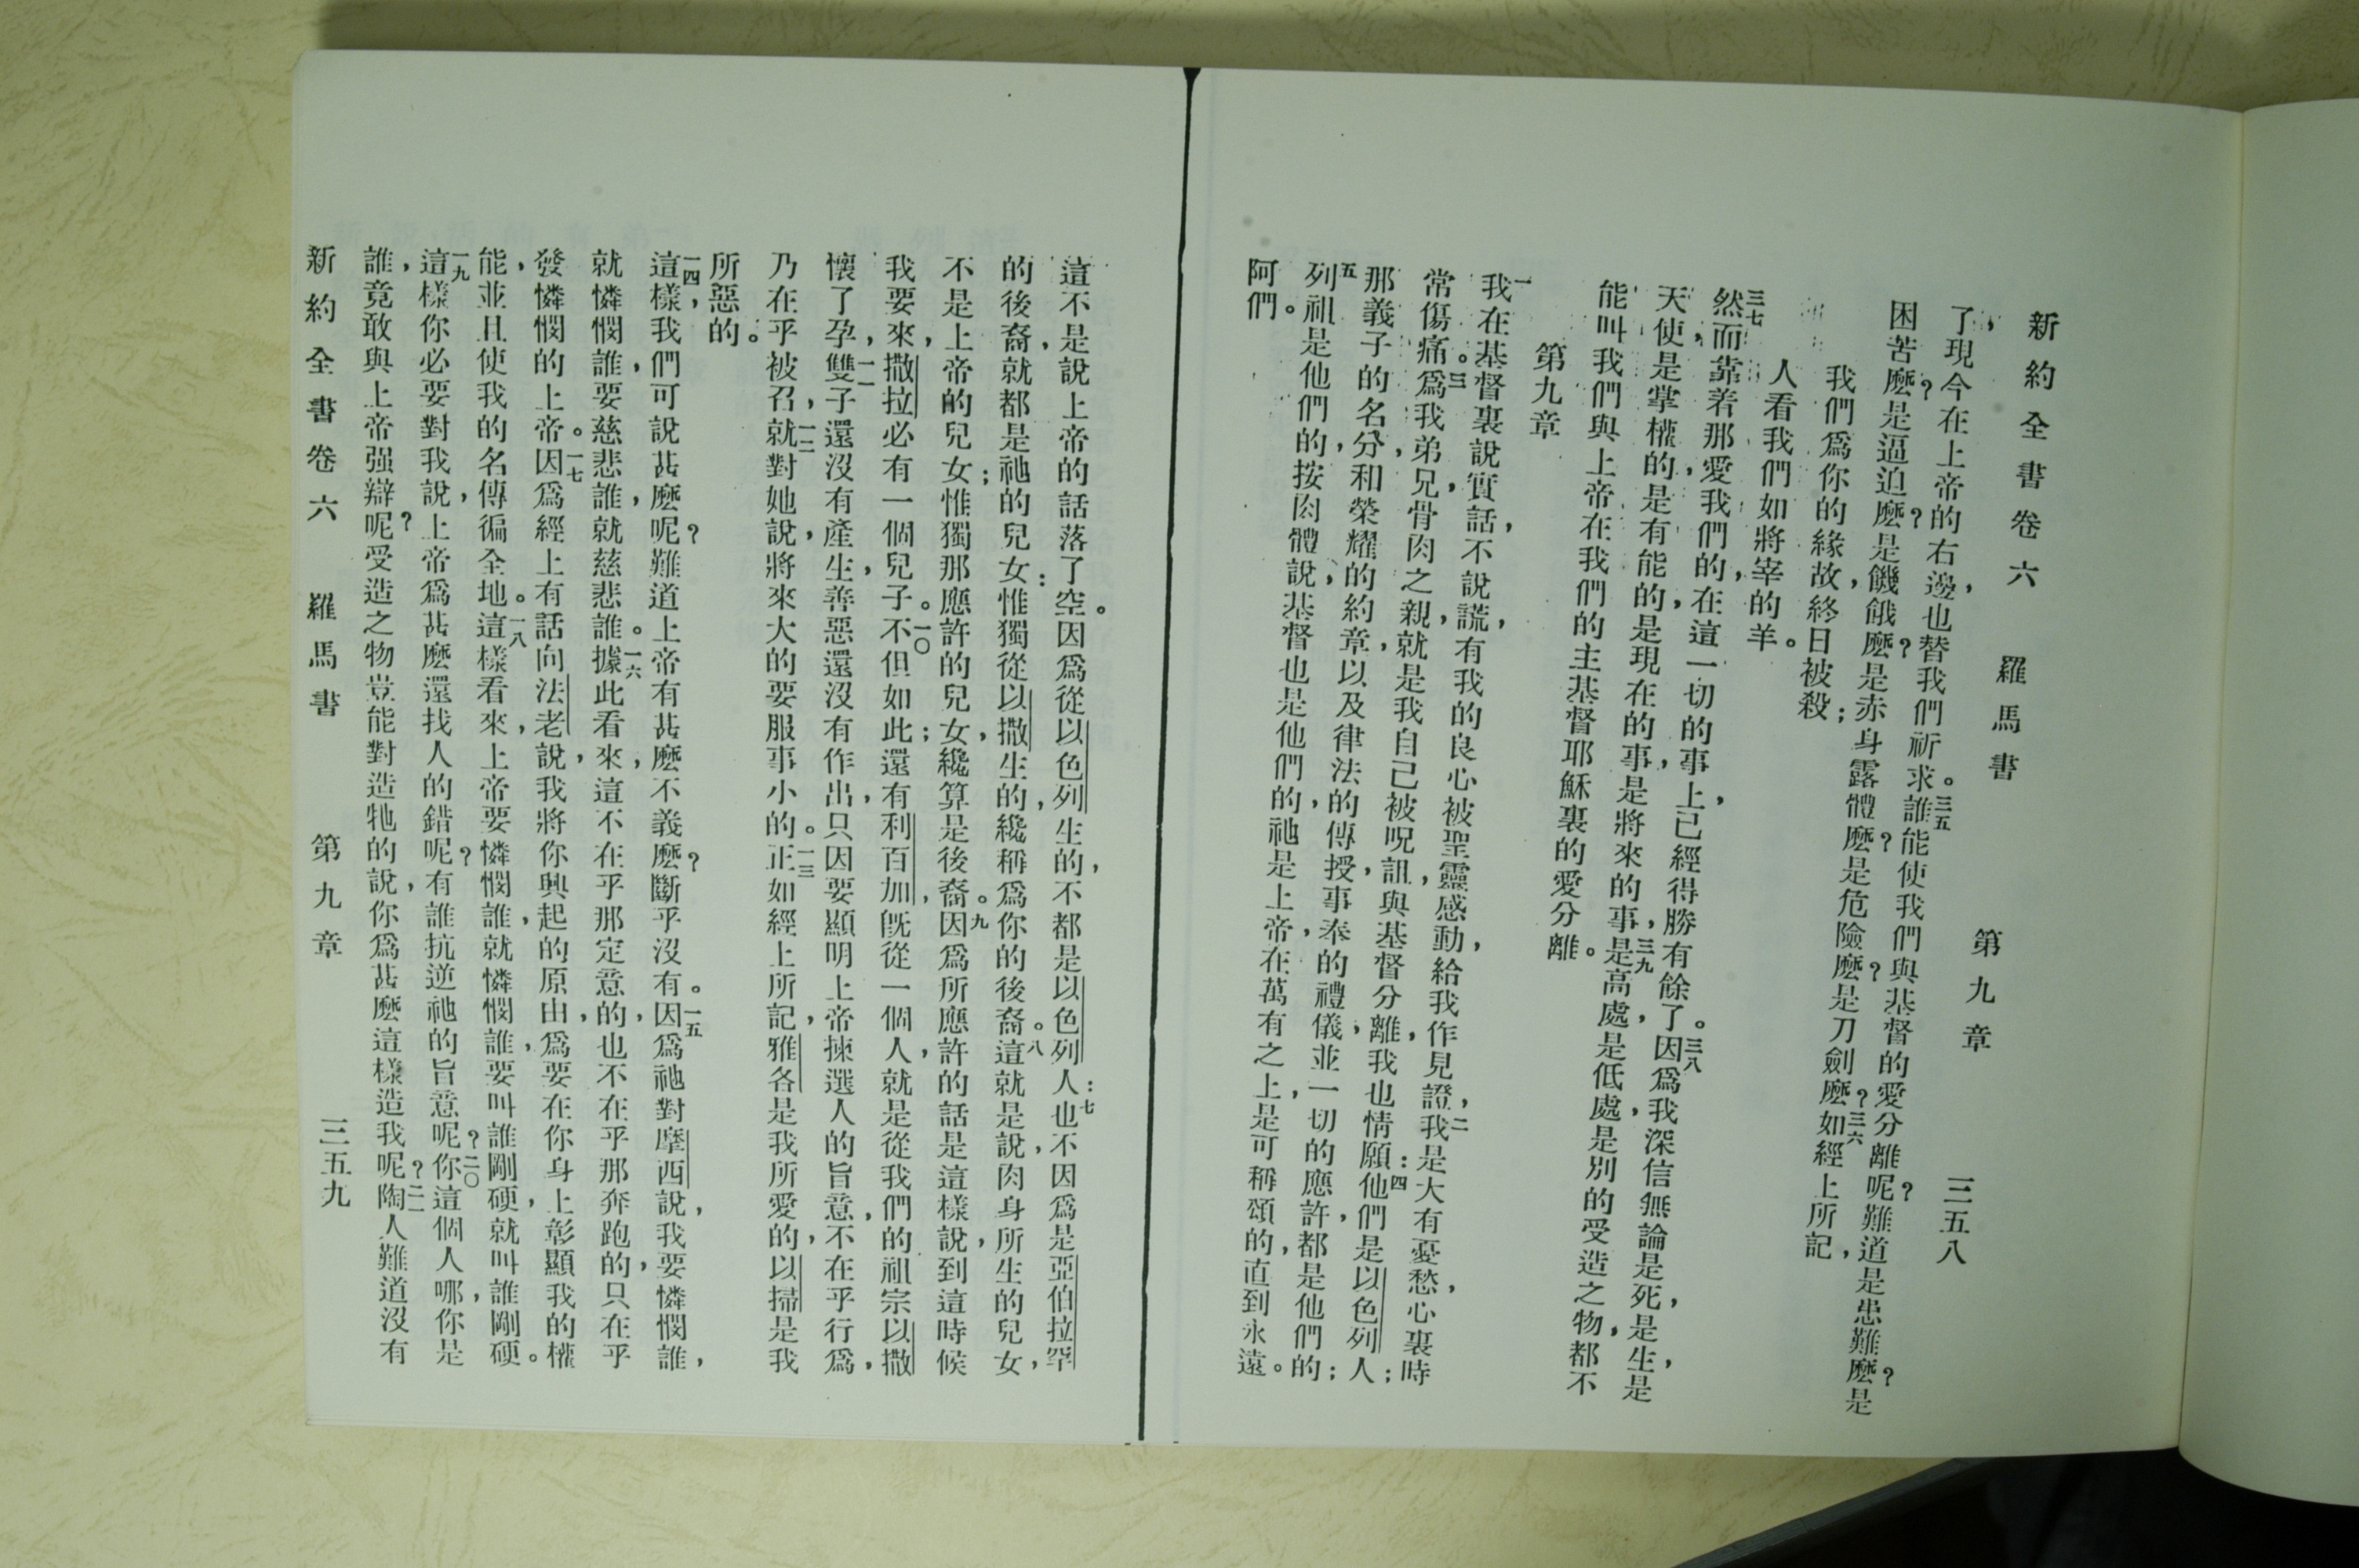 新約全書卷六　羅馬書　第九章　三五八
了，現今在上帝的右邊，也替我們祈求。三五誰能使我們與基督的愛分離呢？難道是患難麼？是
困苦麼？是逼迫麼？是饑餓麼？是赤身露體麼？是危險麼？是刀劍麼？三六如經上所記，
我們爲你的緣故，終日被殺；
人看我們如將宰的羊。
三七然而靠着那愛我們的，在這一切的事上，已經得勝有餘了。三八因爲我深信無論是死，是生，是
天使，是掌權的，是有能的，是現在的事，是將來的事，三九是高處，是低處，是別的受造之物，都不
能叫我們與上帝在我們的主基督耶穌裏的愛分離。
第九章
一我在基督裏說實話，不說謊，有我的良心被聖靈感動，給我作見證，二我是大有憂愁，心裏時
常傷痛。三爲我弟兄，骨肉之親，就是我自己被呪詛，與基督分離，我也情願：四他們是以色列人；
那義子的名分，和榮耀的約章，以及律法的傳授，事奉的禮儀，並一切的應許，都是他們的；
五列祖是他們的，按肉體說，基督也是他們的，祂是上帝，在萬有之上，是可稱頌的，直到永遠。
阿們。
這不是說上帝的話落了空。因爲從以色列生的，不都是以色列人：七也不因爲是亞伯拉罕
的後裔，就都是祂的兒女；惟獨從以撒生的，纔稱爲你的後裔。八這就是說，肉身所生的兒女，
不是上帝的兒女；惟獨那應許的兒女，纔算是後裔。九因爲所應許的話是這樣說，到這時候
我要來，撒拉必有一個兒子。一〇不但如此；還有利百加，旣從一個人，就是從我們的祖宗以撒
懷了孕，一一雙子還沒有產生，善惡還沒有作出，只因要顯明上帝揀選人的旨意，不在乎行爲，
乃在乎被召，一二就對她說，將來大的要服事小的。一三正如經上所記，雅各是我所愛的，以掃是我
所惡的。
一四這樣，我們可說甚麼呢？難道上帝有甚麼不義麼？斷乎沒有。一五因爲祂對摩西說，我要憐憫誰，
就憐憫誰，要慈悲誰，就慈悲誰。一六據此看來，這不在乎那定意的，也不在乎那奔跑的，只在乎
發憐憫的上帝。一七因爲經上有話向法老說，我將你興起的原由，爲要在你身上彰顯我的權
能，並且使我的名傳徧全地。一八這樣看來，上帝要憐憫誰，就憐憫誰，要叫誰剛硬，就叫誰剛硬。
一九這樣你必要對我說，上帝爲甚麼還找人的錯呢？有誰抗逆祂的旨意呢？二〇你這個人哪，你是
誰，竟敢與上帝强辯呢？受造之物豈能對造牠的說，你爲甚麼這樣造我呢？二一陶人難道沒有
新約全書卷六　羅馬書　第九章　三五九